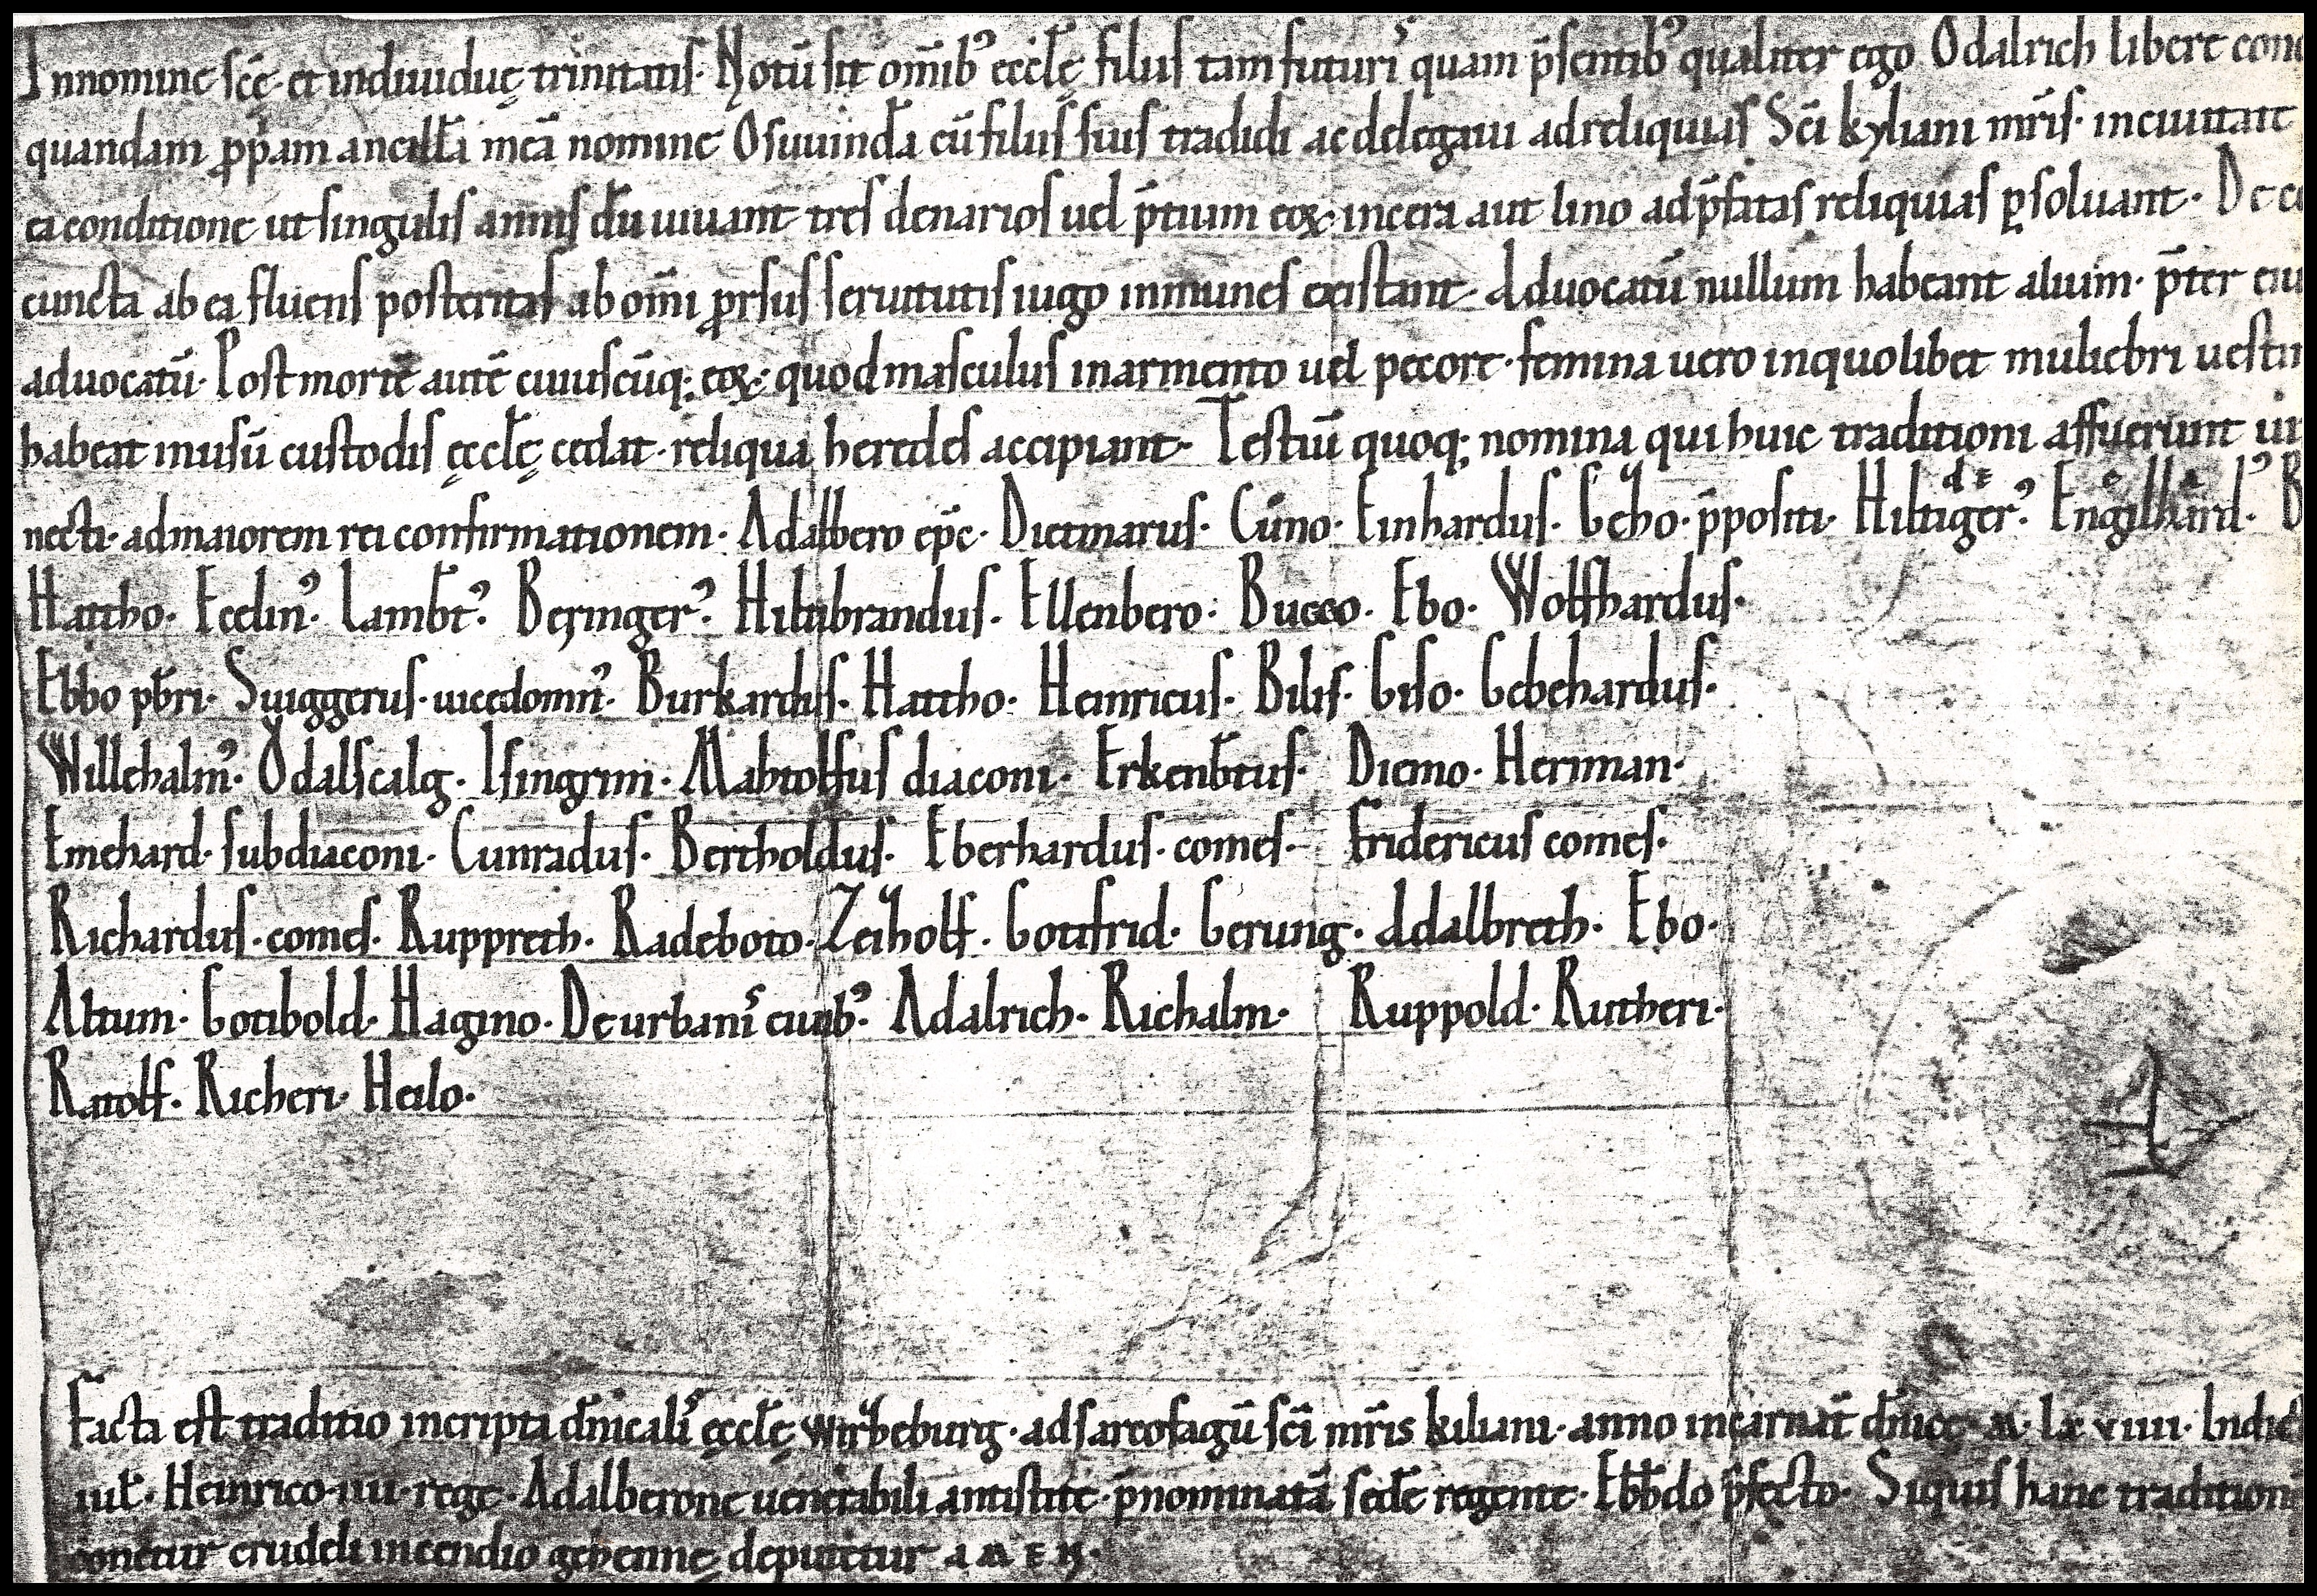 Innomine sc̄ę et indiuiduę trinitatis· Notū sit om̄ibꝰ ęccłę filiis tam futuris quam p̄sentibꝰ qualiter ego Ǒdalrich libere
quandam ꝓp̄am ancillā meā nomine Osuuindā cū filiis suis tradidi ac delegaui ad reliquias Sc̄i kyliani mr̄is· inciuitate
ea conditione ut singulis annis dū uiuant tres denarios uel p̄tium eoꝝ· incera aut lino adp̄fatas reliquias ꝑsoluant·
cuncta ab ea fluens posteritas ab om̄i ꝓrsus seruitutis iugo inmunes existant· Aduocatū nullum habeant alium· p̄ter
aduocatū· Post mortē autē cuiuscūq; eoꝝ· quod masculus inarmento uel pecore· femina uero inquolibet muliebri
habeat inusū custodis ęccłę cedat· reliqua heredes accipiant· Testiū quoq; nomina qui huic traditioni affuerunt
necti· admaiorem rei confirmationem· Adalbero ep̄c· Dietmarus· Cůno· Einhardus· Geho· p̄positi· Hiltigerꝰ· Engilhard·
Hattho· Ecelinꝰ· Lamb̄tꝰ· Beringerꝰ· Hiltibrandus· Ellenbero· Bucco· Ebo· Wolfhardus·
Ebbo pb̄ri· Suiggerus· uicedomnꝰ· Burkardus· Hattho· Heinricus· Bilis· Giso· Gebehardus·
Willehalmꝰ· Ǒdalscalg· Isingrim· Mahtolfus diaconi· Erkenb̄tus· Diemo· Heriman·
Emehard· subdiaconi· Cunradus· Bertholdus· Eberhardus· comes· Fridericus comes·
Richardus· comes· Ruppreth· Radeboto· Zeiholf· Gottfrid· Gerung· Adalbreth· Ebo·
Altum· Gotibold· Hagino· De urbanis ciuibꝰ· Adalrich· Richalm· Ruppold· Rutheri·
Ratolf· Richeri· Heilo·
Facta est traditio incripta dn̄icalis ęccłę wirzeburg· ad sarcofagū sc̄i mr̄is kiliani· anno incarnat̄ dn̄icę· M· Lx viiii·
iul̄· Heinrico· iiii· rege· Adalberone uenerabili antistite· p̄nominatā sedē regente· Ebb̄do p̄fecto· Siquis hanc
crudeli incendio gehennę deputetur AMEN·